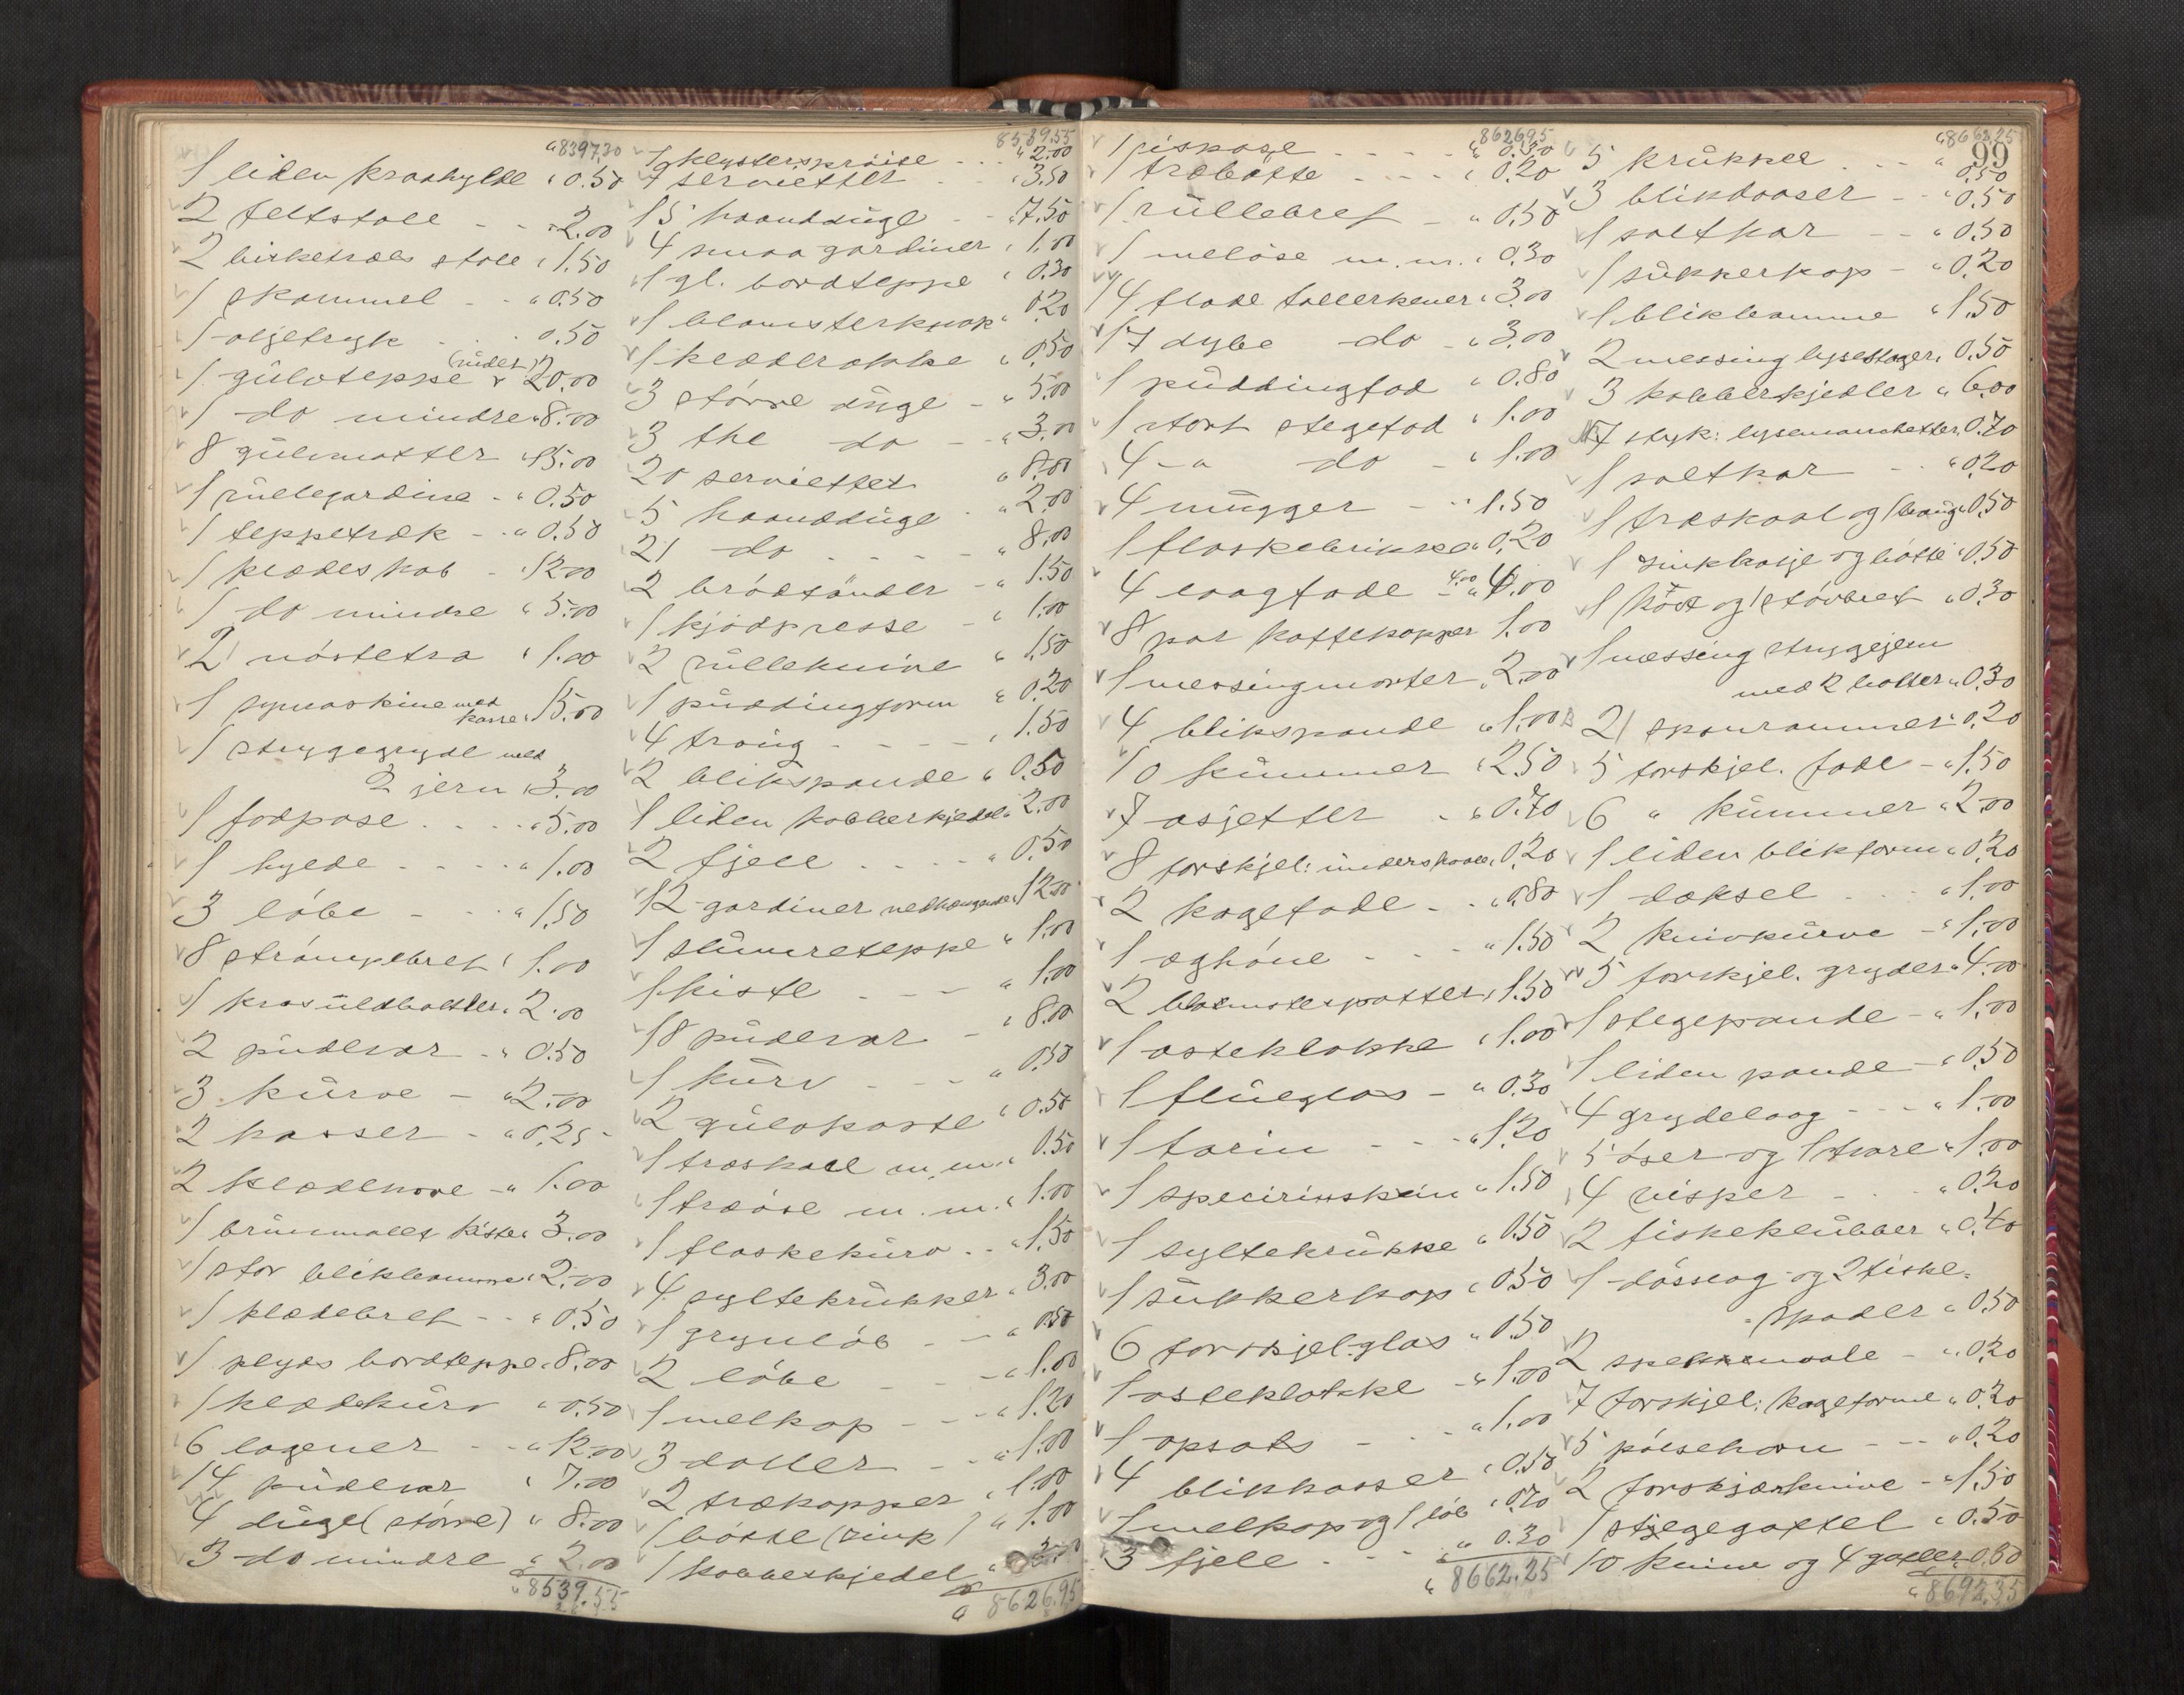 "8397,30
1 liden kraahylde " 0.50
2 feltstole - - " 2.00
2 birketræes stole " 1.50
1 skammel - - " 0.50
1 oljetryk - - 0.50
1 gulvteppe (rødt) " 20.00
1 do mindre " 8.00
8 gulvmatter " 15.00
1 rullegardine - " 0.50
1 teppetræk - - " 0.50
1 klædeskab - " 12.00
1 do mindre " 5.00
2 nøstetra " 1.00
1 symaskine med kasse " 15.00
1 strygegryde med
2 jern " 3.00
1 fodpose . . . . " 5.00
1 hylde - - - - " 1.00
3 løbe - - - " 1.50
8 strømpebret " 1.00
1 " 2.00
2 pudevar - " 0.50
3 kurve - " 2.00
2 kasser - " 0.25
2 " 1.00
1 brunmalet kiste " 3.00
1 stor blikbamme " 2.00
1 klædebret - - " 0.50
1 plyds bordteppe " 8.00
1 klædekurv " 0.50
6 lagener - - " 12.00
14 pudevar " 7.00
4 duge (større) " 8.00
3 do mindre " 2.00
" 8539.55
8539.55
1 klystersprøite - - " 2.00
7 servietter - - " 3.50
15 haandduge - - " 7.50
4 smaa gardiner " 1.00
1 gl. bordteppe " 0.30
1 blomsterkrak " 0.20
1 " 0.50
3 større duge - " 5.00
3 the do - - " 3.00
20 servietter " 8.00
5 haandduge - " 2.00
21 do - - - - " 8.00
2 brødtønder - " 1.50
1 kjødpresse - " 1.00
2 rulleknive " 1.50
1 puddingform " 0.20
4 traug - - - - " 1.50
2 blikspande " 0.50
1 liden kobberkjedel " 2.00
2 fjele . . . . " 0.50
12 gardiner nedhængende " 12.00
1 slumreteppe " 1.00
1 kiste - - - " 1.00
18 pudevar - " 8.00
1 kurv - - - " 0.50
2 gulvkoste " 0.50
1 træskaal m. m. " 0.50
1 træøse m. m. " 1.00
1 flaskekurv . . " 1.50
4 syltekrukker " 3.00
1 grynløb - - " 0.50
2 løbe - - " 1.00
1 melkop - - - " 1.20
3 daller - - " 1.00
2 trækopper " 1.00
1 bøtte (zink) " 1.00
1 kobberkjedel " 3.00
" 8626.95
8626.95
1 ispose - - - - " 0.50
1 træbøtte - - - - " 0.20
1 rullebret - " 0.50
1 meløse m.m. " 0.30
14 flade tallerkener " 3.00
17 dybe do - " 3.00
1 puddingfad " 0.80
1 stort stegefad " 1.00
4 - " do - " 1.00
4 mugger - - " 1.50
1 flaskebrikke " 0.20
4 laagfade 4.00 - " 4.00
8 par kaffekopper 1.00
1 messingmorter " 2.00
4 blikspande " 1.00
10 kummer " 2.50
7 asjetter . " 0.70
8 forskjel: underskaale " 0.20
2 kagefade - . " 0.80
1 æghøne - - - " 1.50
2 blomsterpotter " 1.50
1 osteklokke " 1.00
1 flueglas - " 0.30
1 tarin - - - " 1.20
1 " 1.50
1 syltekrukke " 0.50
1 sukkerkop " 0.50
6 forskjel. glas " 0.50
1 osteklokke - " 1.00
1 opsats - - - " 1.00
4 blikkasser " 0.50
1 melkop og 1 løb " 0.70
3 fjele . - - - " 0.30
" 8662.25
" 8662.25
99
5 krukker - - - " 0.50
3 blikdaaser - - " 0.50
1 saltkar - - " 0.50
1 sukkerkop - " 0.20
1 blikbamme " 1.50
2 messing lysestager " 0.50
3 kobberkjedler " 6.00
7 styk: lysemanchetter 0.70
1 saltkar - - " 0.20
1 træskaal og 1 traug " 0.50
1 sinkbalje og bøtte " 0.50
1 kost og 1 støvbret " 0.30
1 messing strygejern
med 2 bolter " 0.30
21 0.20
5 forskjel. fade - " 1.50
6 " kummer " 2.00
1 liden blikform " 0.20
1 dæksel - - " 1.00
2 knivkurve - " 1.00
5 forskjel. gryder " 4.00
1 stegepande - " 1.00
1 liden pande - " 0.50
4 grydelaag - - - " 1.00
5 øser og 1 tvare " 1.00
4 visper - - - " 0.20
2 fiskeklubber " 0.40
1 dørslag og 2 fiske=
=spader " 0.50
2 - " 0.20
7 forskjel: kageforme " 0.20
5 pølsehorn - - " 0.20
2 forskjærknive - " 1.50
1 stegegaffel " 0.50
10 knive og 4 gafler " 0.80
" 8692.35